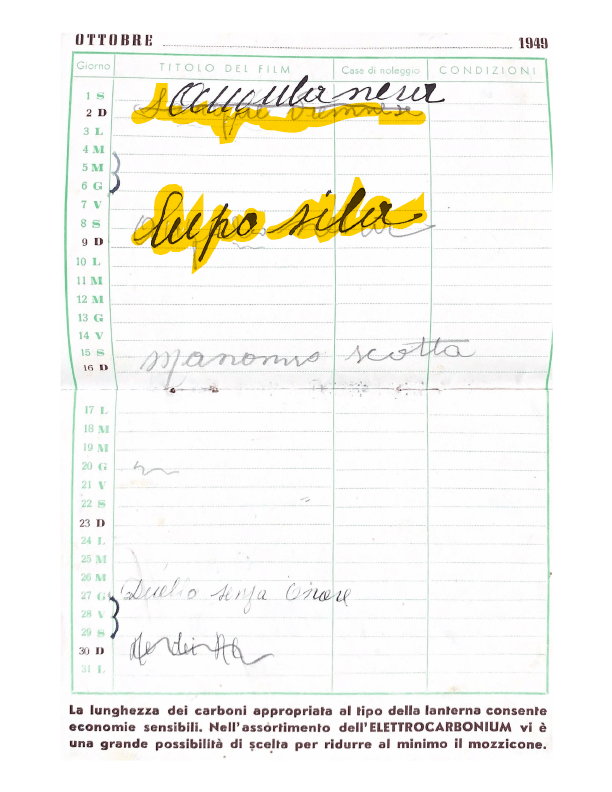 OTTOBRE 1949
Giorno TITOLO DEL FILM Case di noleggio CONDIZIONI
1 S
2 D
3 L
4 M
5 M
6 G
7 V
8 S Lupo sila
9 D
10 L
11 M
12 M
13 G
14 V
15 S scotta
16 D
17 L
18 M
19 M
20 G
21 V
22 S
23 D
24 L
25 M
26 M
27 G Duello senza Onore
28 V
29 S
30 D
31 L
La lunghezza dei carboni appropriata al tipo della lanterna consente
economie sensibili. Nell'assortimento dell'ELETTROCARBONIUM vi è
una grande possibilità di scelta per ridurre al minimo il mozzicone.